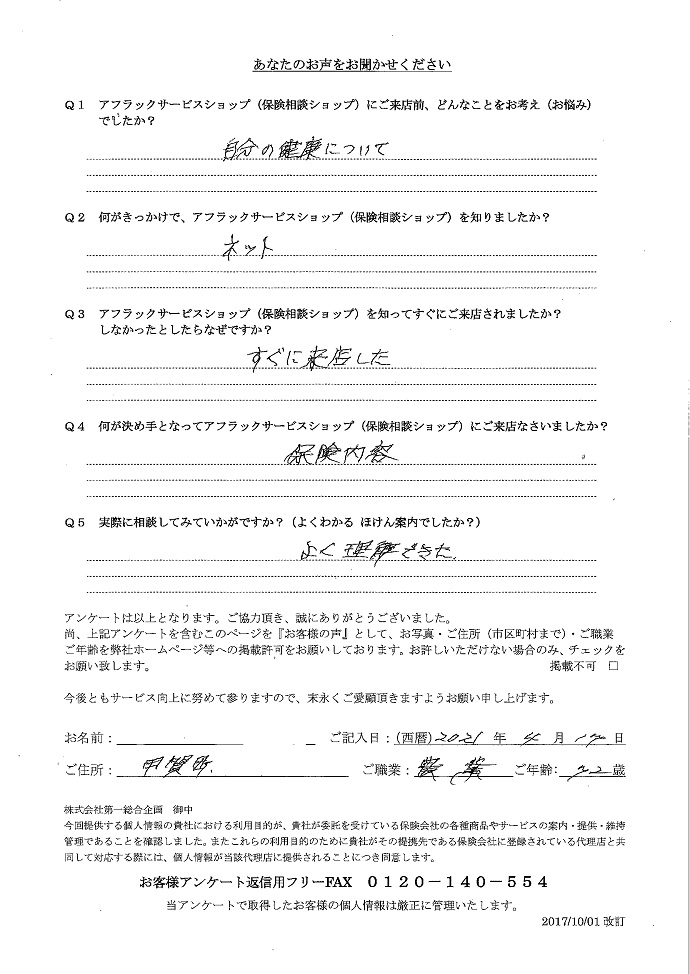 あなたのお声をお聞かせください
Q1 アフラックサービスショップ（保険相談ショップ）にご来店前、どんなことをお考え（お悩み）
でしたか？
自分の健康について
Q2 何がきっかけで、アフラックサービスショップ（保険相談ショップ）を知りましたか？
ネット
Q3 アフラックサービスショップ（保険相談ショップ）を知ってすぐにご来店されましたか？
しなかったとしたらなぜですか？
すぐに来店した
Q4 何が決め手となってアフラックサービスショップ（保険相談ショップ）にご来店なさいましたか？
保険内容
Q5 実際に相談してみていかがですか？（よくわかる ほけん案内でしたか？）
よく理解できた.
アンケートは以上となります。ご協力頂き、誠にありがとうございました。
尚、上記アンケートを含むこのページを『お客様の声』として、お写真・ご住所（市区町村まで）・ご職業
ご年齢を弊社ホームページ等への掲載許可をお願いしております。お許しいただけない場合のみ、チェックを
お願い致します。 掲載不可 □
今後ともサービス向上に努めて参りますので、末永くご愛顧頂きますようお願い申し上げます。
お名前： ご記入日：(西暦)2021 年 4 月 日
ご住所： 甲賀町. ご職業：農業 ご年齢: 歳
株式会社第一総合企画 御中
今回提供する個人情報の貴社における利用目的が、貴社が委託を受けている保険会社の各種商品やサービスの案内・提供・維持
管理であることを確認しました。またこれらの利用目的のために貴社がその提携先である保険会社に登録されている代理店と共
同して対応する際には、個人情報が当該代理店に提供されることにつき同意します。
お客様アンケート返信用フリーFAX 0120－140－554
当アンケートで取得したお客様の個人情報は厳正に管理いたします。
2017/10/01 改訂